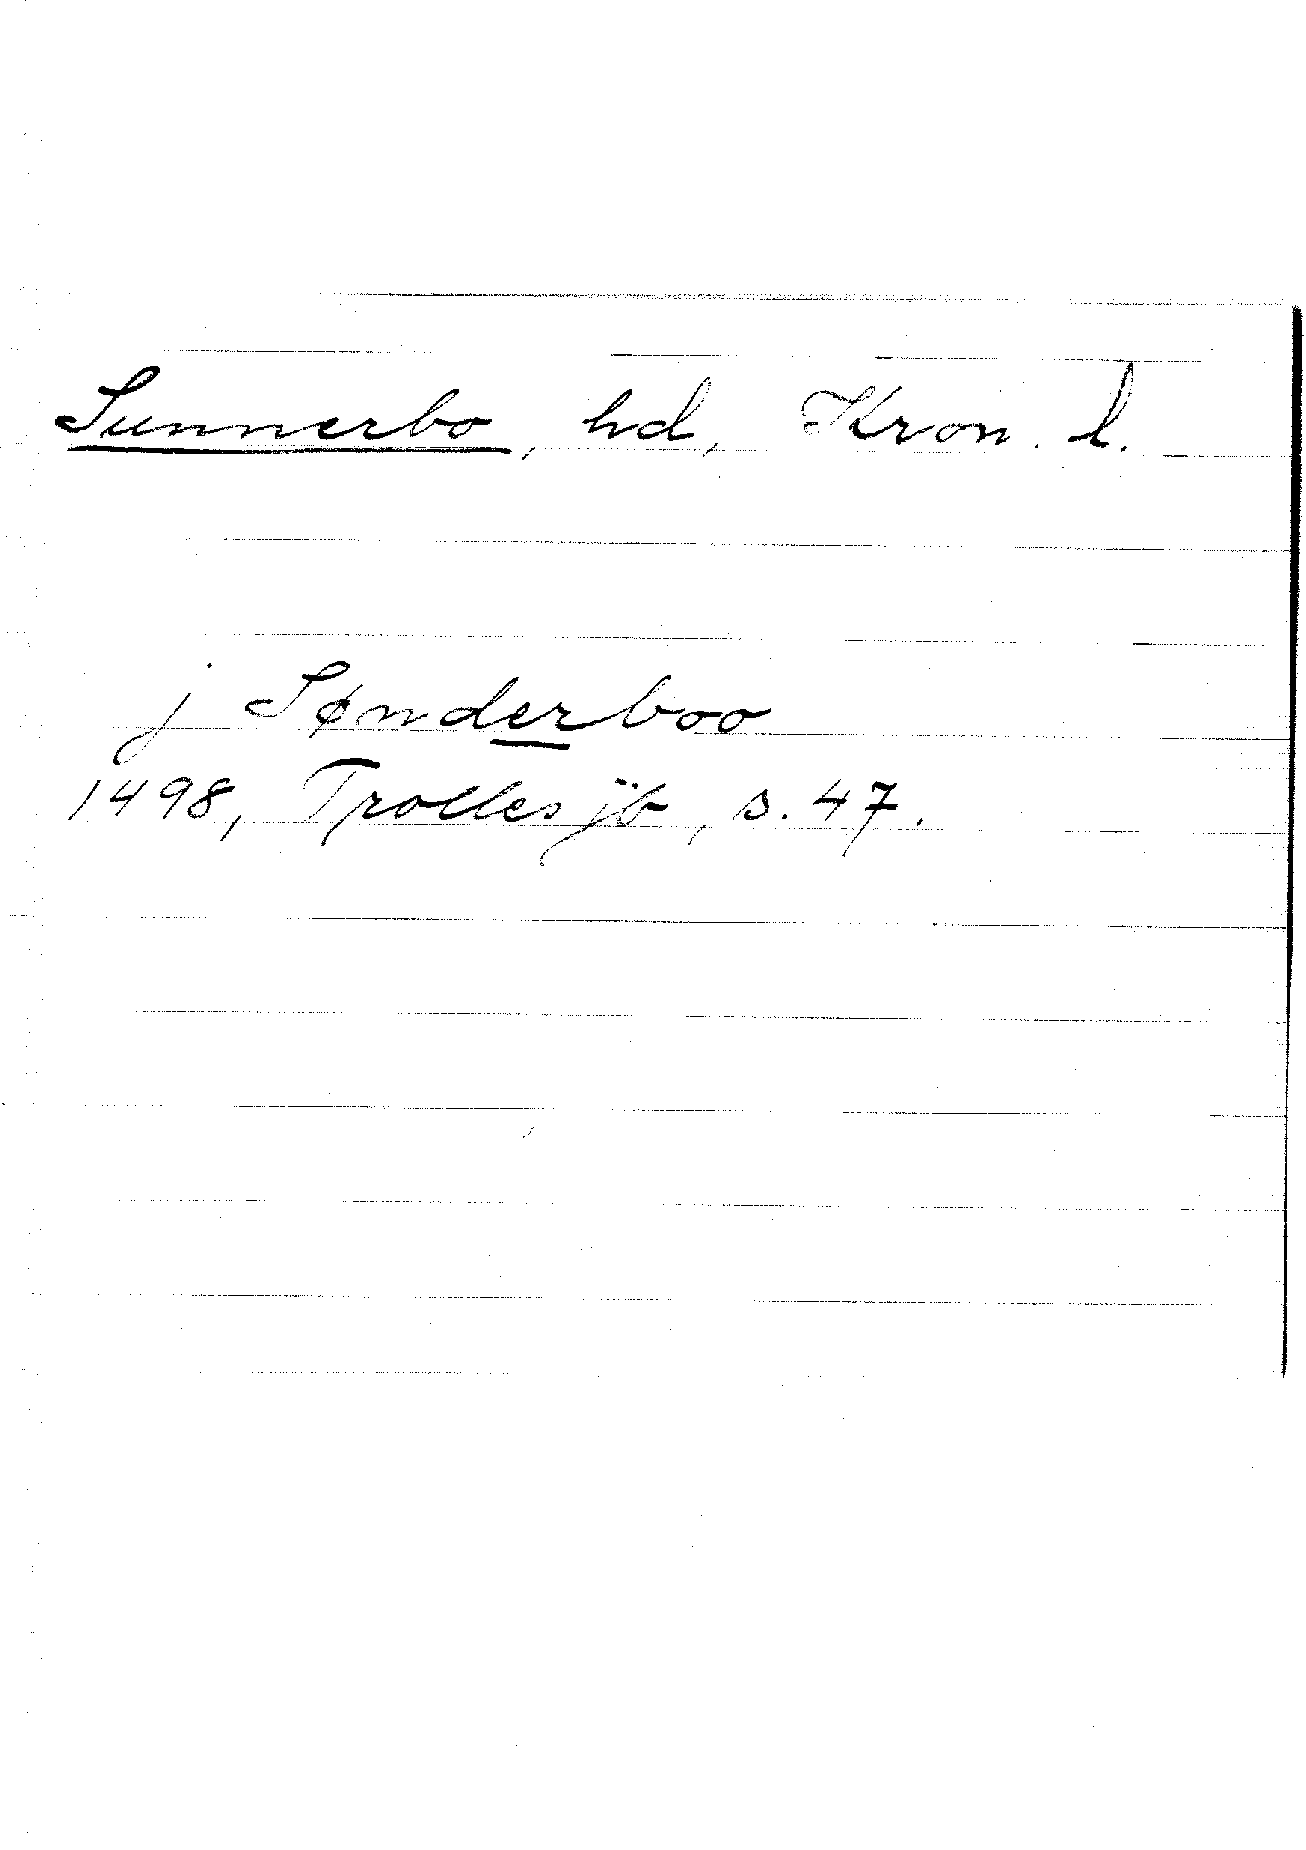 Sunnerbo, hd, Kron. l.
j Sønderboo
1498, Trolles jb, s. 47.